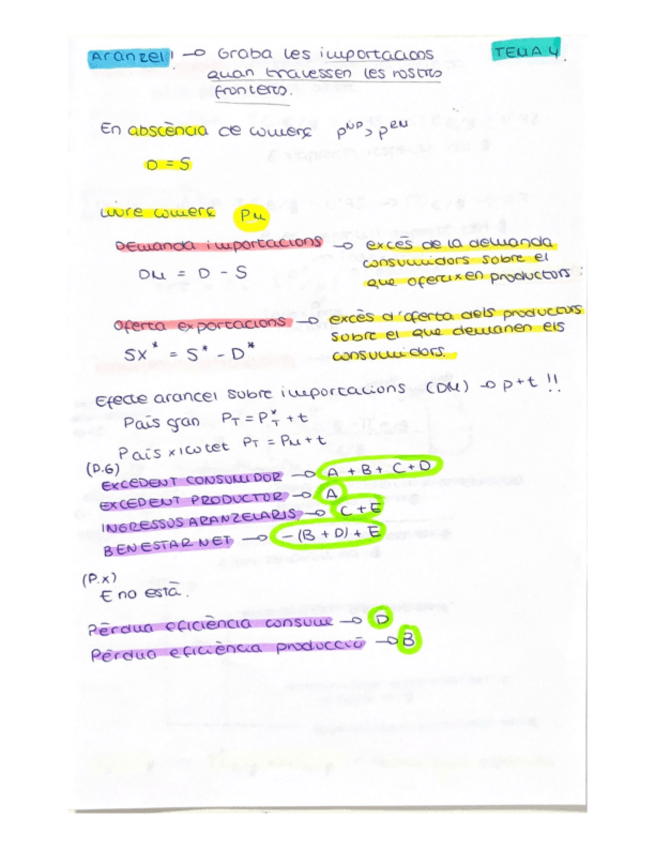 Aranzel → Graba les importacions
TEMA 4
quan travessen les nostres
fronteres.
En abscència de comerç p^NP > p^RM
D = S
lliure comerç PM
Demanda importacions → excés de la demanda
consumidors sobre el
DM = D - S
que oferixen productors
Oferta exportacions → excès d'oferta dels productors
sobre el que demanen els
SX* = S* - D*
consumidors.
Efecte arancel sobre importacions (DM) → p+t !!
País gran PT = P*T + t
País xicotet PT = PM + t
(P.G)
EXCEDENT CONSUMIDOR → A + B + C + D
EXCEDENT PRODUCTOR → A
INGRESSOS ARANZELARIS → C + E
BENESTAR NET → -(B + D) + E
(P.X)
E no està.
Pèrdua eficiència consum → D
Pèrdua eficiència producció → B